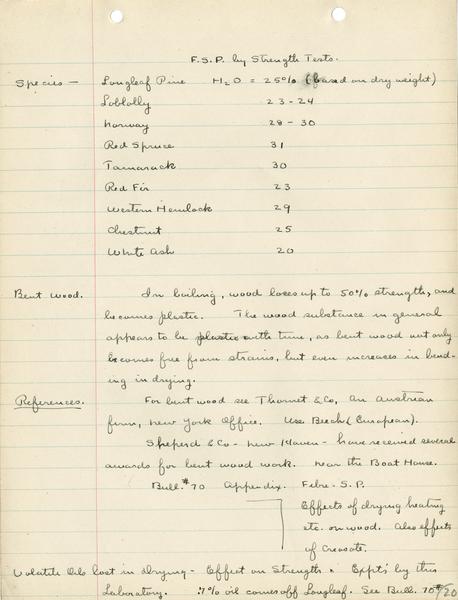 F.S.P. by Strength Tests.
Species — Longleaf Pine H2O = 25% (based on dry weight)
Loblolly 23-24
Norway 28-30
Red Spruce 31
Tamarack 30
Red Fir 23
Western Hemlock 29
Chestnut 25
White Ash 20
Bent Wood. In boiling, wood loses up to 50% strength, and
becomes plastic. The wood substance in general
appears to be plastic with time, as bent wood not only
becomes free from strains, but even increases in bend-
ing in drying.
References. For bent wood see Thornet & Co, an Austrian
firm, New York Office. Use Beech (European).
Sheperd & Co - New Haven - have received several
awards for bent wood work. Near the Boat House.
Bull. #70 Appendix. Febre-S.P.
Effects of drying heating
etc. on wood. Also effects
of Creosote.
Volatile Oils lost in Drying - Effect on Strength. Expt's by this
Laboratory. .7% oil comes off Longleaf. See Bull. 70